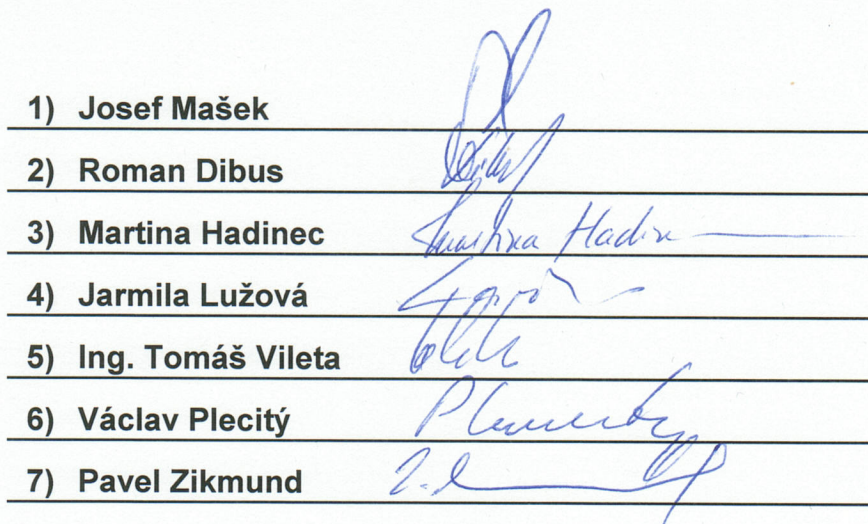 1) Josef Mašek
2) Roman Dibus
3) Martina Hadinec Martina Hadin
4) Jarmila Lužová
5) Ing. Tomáš Vileta
6) Václav Plecitý
7) Pavel Zikmund